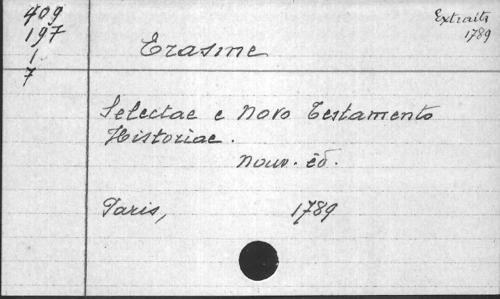 409
197
1
7
Extraits
1789
Erasme
Selectae e Novo Testamento
Historiae.
nouv. éd.
Paris, 1789